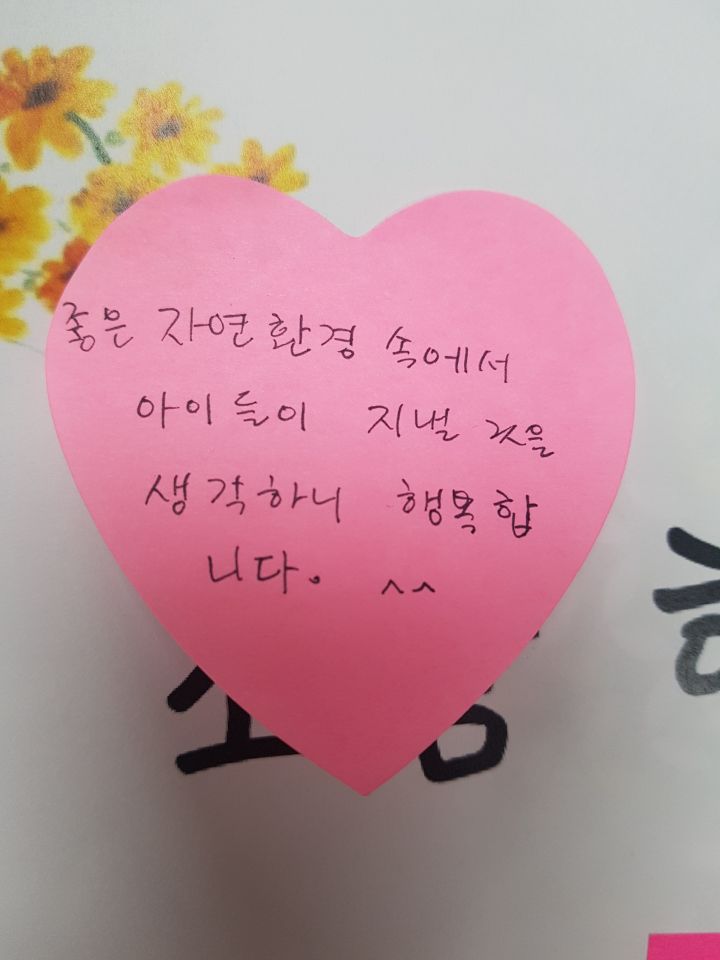 좋은 자연환경 속에서
아이들이 지낼 것을
생각하니 행복합
니다. ^^